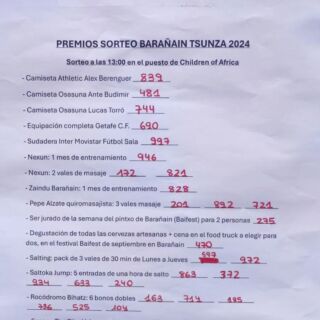 PREMIOS SORTEO BARAÑAIN TSUNZA 2024
Sorteo a las 13:00 en el puesto de Children of Africa
- Camiseta Athletic Alex Berenguer 839
- Camiseta Osasuna Ante Budimir 481
- Camiseta Osasuna Lucas Torró 744
- Equipación completa Getafe C.F. 690
- Sudadera Inter Movistar Fútbol Sala 997
- Nexun: 1 mes de entrenamiento 946
- Nexun: 2 vales de masaje 172 821
- Zaindu Barañain: 1 mes de entrenamiento 828
- Pepe Alzate quiromasajista: 3 vales masaje 201 892 721
- Ser jurado de la semana del pintxo de Barañain (Baifest) para 2 personas 275
- Degustación de todas las cervezas artesanas + cena en el food truck a elegir para
dos, en el festival Baifest de septiembre en Barañain 470
- Salting: pack de 3 vales de 30 min de Lunes a Jueves 972
- Saltoka Jump: 5 entradas de una hora de salto 863 372
934 633 240
- Rocódromo Bihatz: 6 bonos dobles 163 714
736 525 104